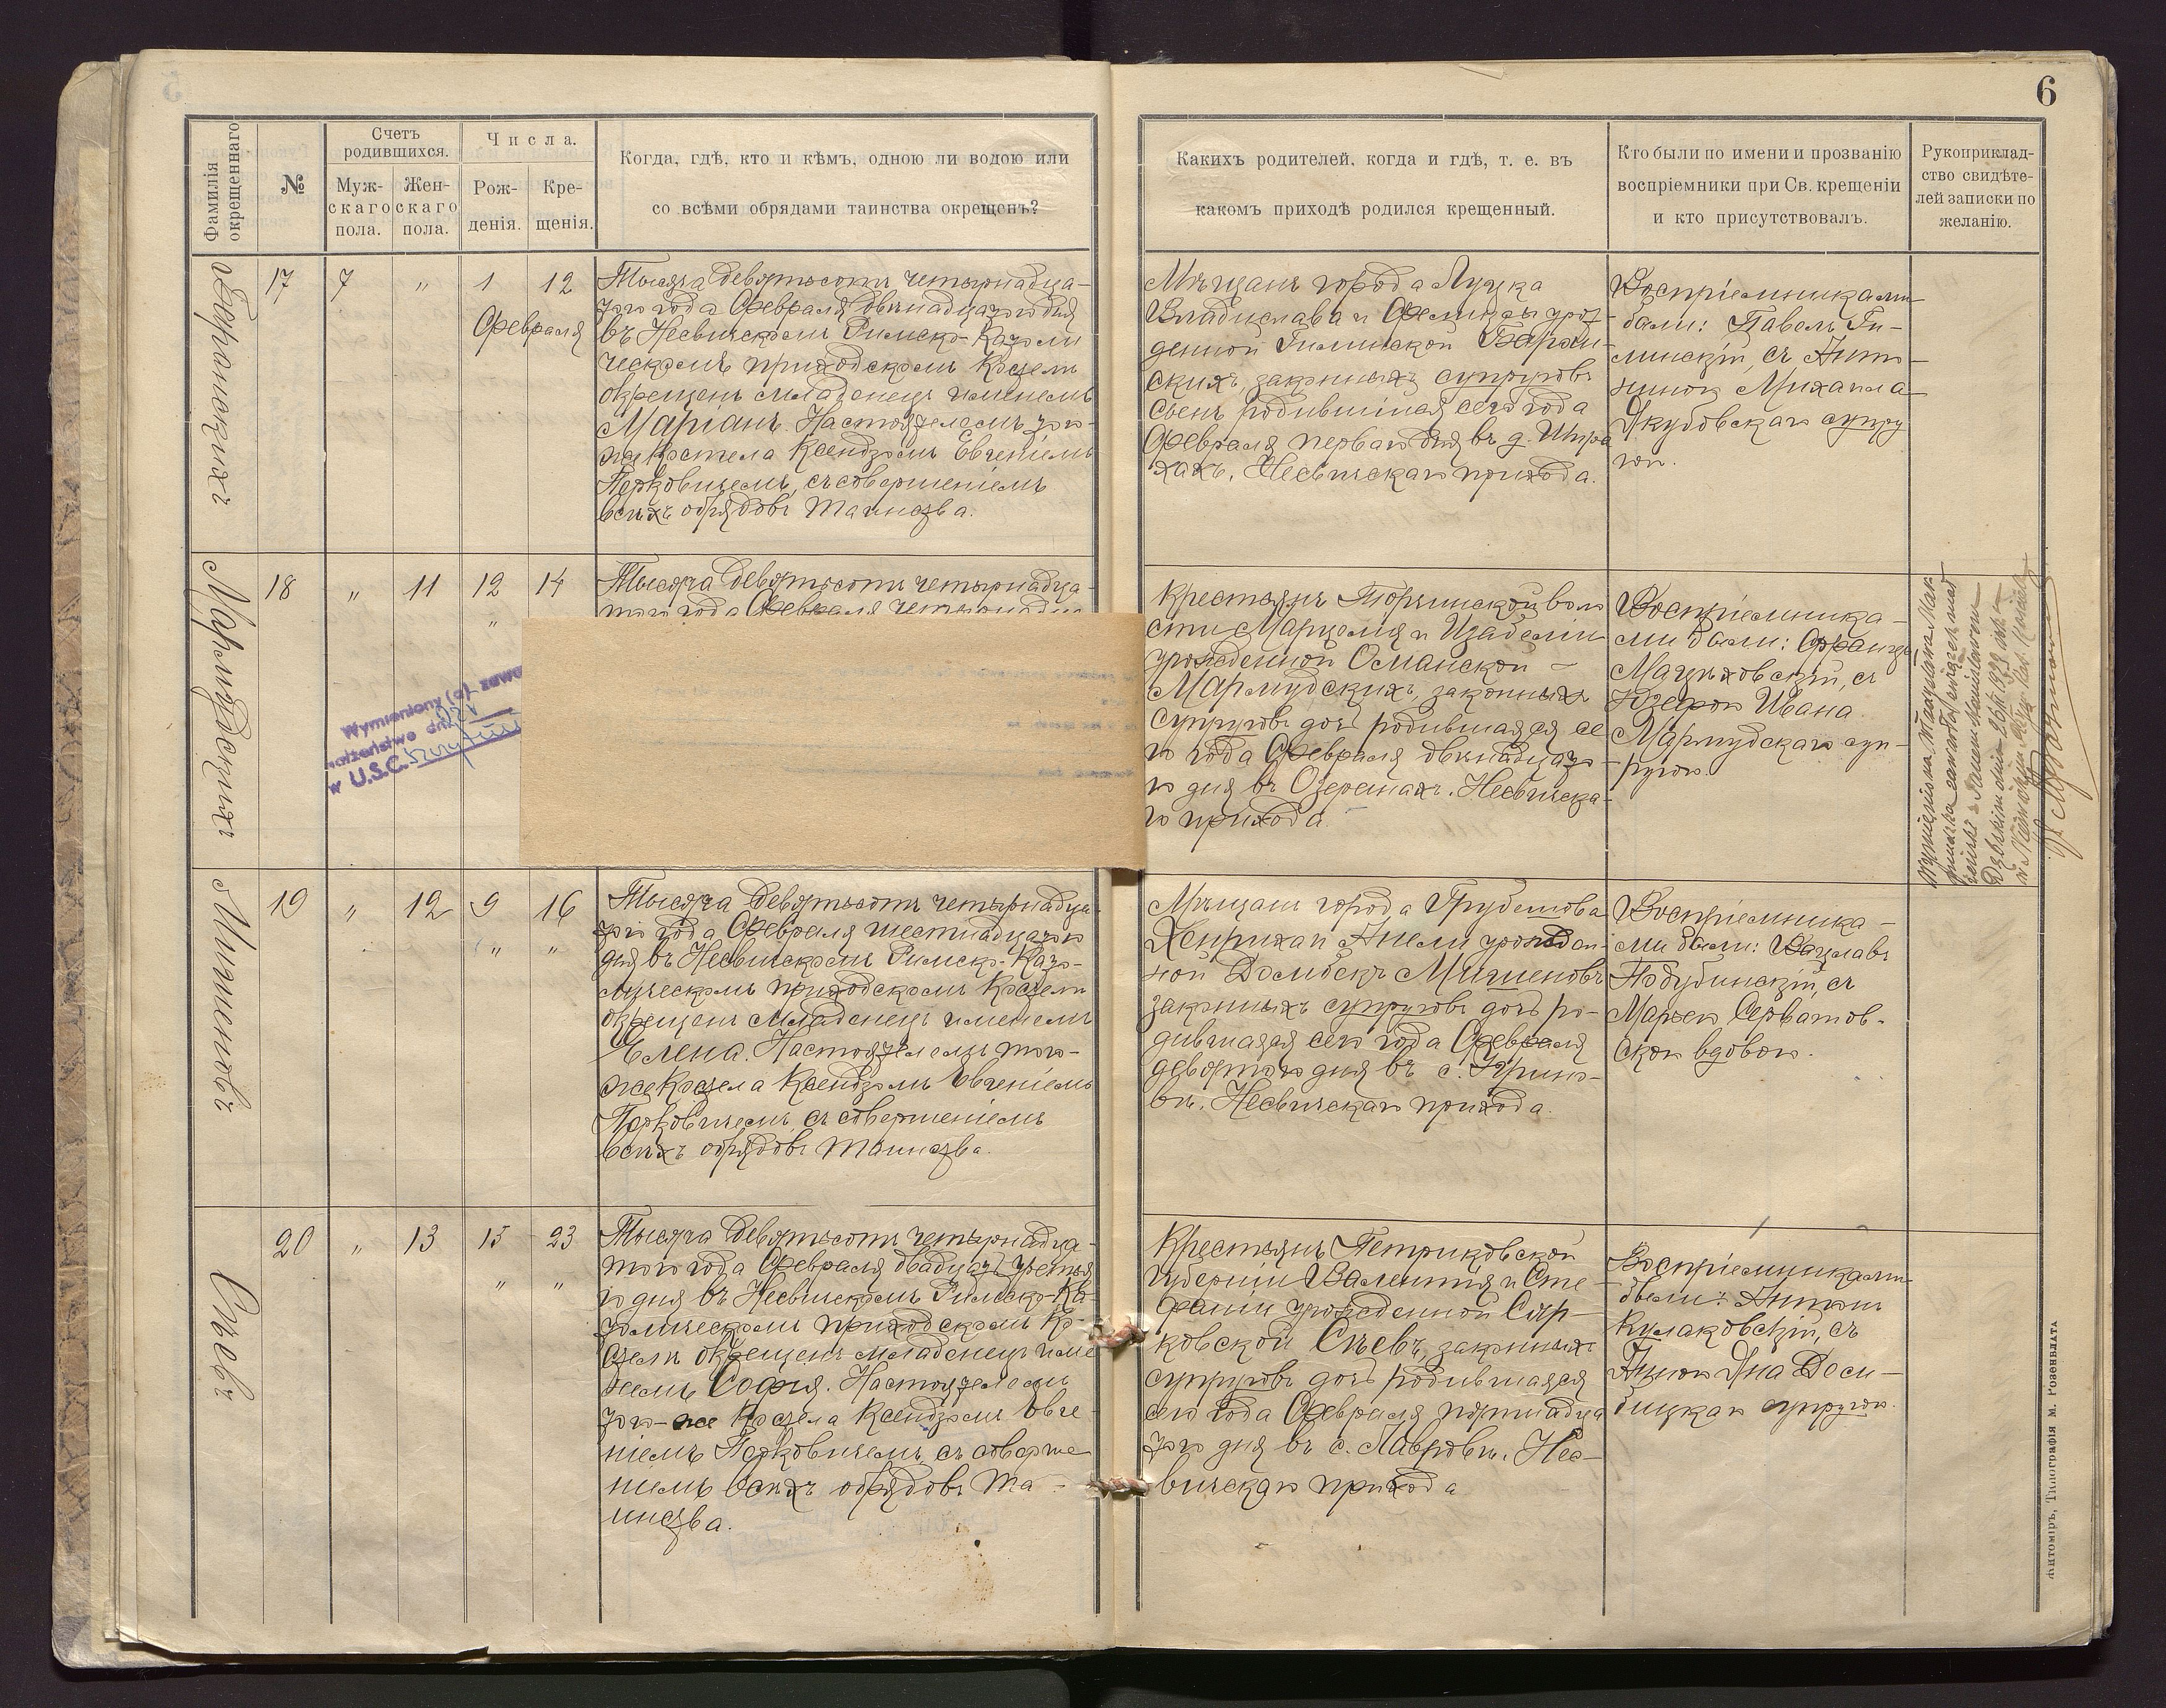 6
Фамилія окрещеннаго
№
Счетъ родившихся.
Мужскаго пола.
Женскаго пола.
Числа.
Рожденія.
Крещенія.
Когда, гдѣ, кто и кѣмъ, одною ли водою или
со всѣми обрядами таинства окрещенъ?
Какихъ родителей, когда и гдѣ, т. е. въ
какомъ приходѣ родился крещенный.
Кто были по имени и прозванію
воспріемники при Св. крещеніи
и кто присутствовалъ.
Рукоприклад-
ство свидѣте-
лей записки по
желанію.
17
7
"
1
12
Февраля
Тысяча девятьсотъ четырнадца-
того года Февраля двѣнадцатого дня
въ Несвичскомъ Римско-Католи
ческомъ приходскомъ Костелѣ
окрещенъ младенецъ именемъ
Маріанъ. Настоятелемъ того-
же Костела Ксендзомъ Евгеніемъ
съ совершеніемъ
всѣхъ обрядовъ таинства.
Мѣщанъ города Луцка
Владислава и Фелиціи урож-
денной Гилинской
скихъ, законныхъ супруговъ
сынъ родившійся сего года
Февраля перваго дня въ д.
Несвичскаго прихода.
Воспріемниками
были: Павелъ Ги-
линскій, съ Анто-
ниною Михаила
Якубовскаго супру
гою.
Мармудскихъ
18
"
11
12
14
"
Тысяча девятьсотъ четырнадца-
того года Февраля четырнадца
Wymieniony (a) zawa
małżeństwo dn.
w U.S.C.
Крестьянъ Торчинской воло
сти Марцелія и Изабеліи
урожденной Османской
Мармудскихъ, законныхъ
супруговъ дочь родившаяся се
го года Февраля двѣнадцато
го дня въ Озеранахъ, Несвичска-
го прихода.
Воспріемника-
ми были: Францъ
Мацѣховскій, съ
Юзефою Ивана
Мармудскаго суп-
ругою.
19
"
12
9
16
"
"
Тысяча девятьсотъ четырнадца-
того года Февраля шестнадцатого
дня въ Несвичскомъ Римско-Като-
лическомъ приходскомъ Костелѣ
окрещенъ младенецъ именемъ
Елена. Настоятелемъ того-
же Костела Ксендзомъ Евгеніемъ
съ совершеніемъ
всѣхъ обрядовъ таинства.
Мѣщанъ города Грубешова
Хенриха и Анели урожден-
ной Домбекъ Мишеновъ
законныхъ супруговъ дочь ро-
дившаяся сего года Февраля
девятого дня въ с.
Несвичскаго прихода.
Воспріемника-
ми были: Вацлавъ
съ
Марьею Серватов-
скою вдовою.
20
"
13
15
23
"
"
Тысяча девятьсотъ четырнадца-
того года Февраля двадцать третья
го дня въ Несвичскомъ Римско-Ка-
толическомъ приходскомъ Ко-
стелѣ окрещенъ младенецъ име
немъ Софія. Настоятелемъ
того-же Костела Ксендзомъ Евге-
ніемъ съ соверше
ніемъ всѣхъ обрядовъ та-
инства.
Крестьянъ Петриковской
губерніи Валентія и Сте
фаніи урожденной
Сѣевъ, законныхъ
супруговъ дочь родившаяся
сего года Февраля пятнадца
того дня въ с. Лавровѣ, Нес-
вичскаго прихода
Воспріемниками
были: Антонъ
Кулаковскій, съ
супругою.
Житоміръ, Типографія М. Розенблата